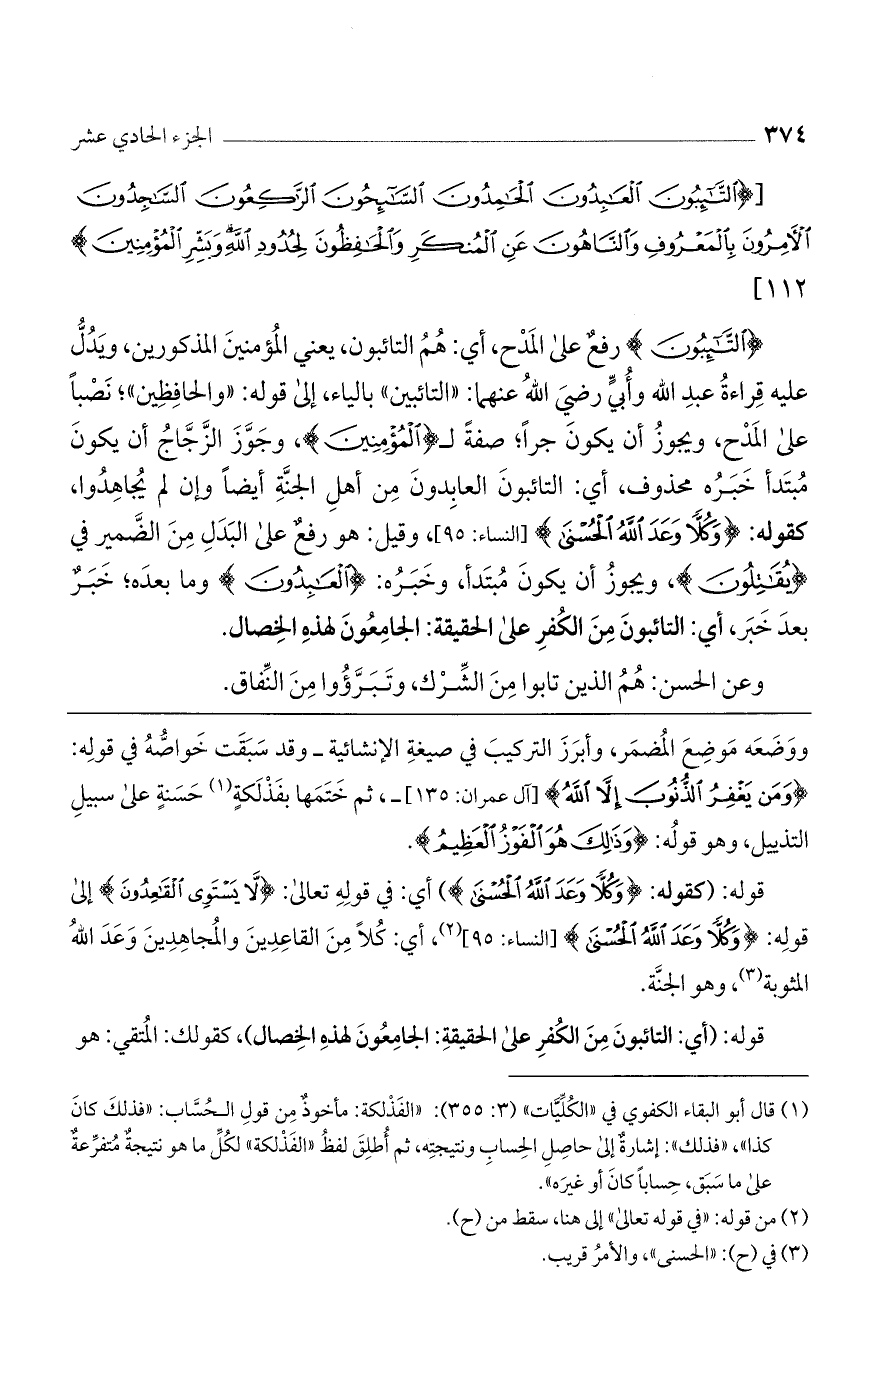 ٣٧٤ الجزء الحادي عشر
[﴿ٱلتَّٰٓئِبُونَ ٱلْعَٰبِدُونَ ٱلْحَٰمِدُونَ ٱلسَّٰٓئِحُونَ ٱلرَّٰكِعُونَ ٱلسَّٰجِدُونَ
ٱلْءَامِرُونَ بِٱلْمَعْرُوفِ وَٱلنَّاهُونَ عَنِ ٱلْمُنكَرِ وَٱلْحَٰفِظُونَ لِحُدُودِ ٱللَّهِ ۗ وَبَشِّرِ ٱلْمُؤْمِنِينَ﴾
١١٢]
﴿ٱلتَّٰٓئِبُونَ﴾ رفعٌ علىٰ المَدْح، أي: هُمُ التائبون، يعني المُؤمنينَ المذكورين، ويَدُلُّ
عليه قِراءةُ عبدِ الله وأُبيٍّ رضيَ اللهُ عنهما: «التائبين» بالياء، إلىٰ قوله: «والحافِظِين»؛ نَصْباً
علىٰ المَدْح، ويجوزُ أن يكونَ جراً؛ صفةً لـ﴿ٱلْمُؤْمِنِينَ﴾، وجَوَّزَ الزَّجاجُ أن يكونَ
مُبتَدأ خَبَرُه محذوف، أي: التائبونَ العابِدونَ مِن أهلِ الجنَّةِ أيضاً وإن لم يُجاهِدُوا،
كقوله: ﴿وَكُلًّا وَعَدَ ٱللَّهُ ٱلْحُسْنَىٰ﴾ [النساء: ٩٥]، وقيل: هو رفعٌ علىٰ البَدَلِ مِنَ الضَّمير في
﴿يُقَٰتِلُونَ﴾، ويجوزُ أن يكونَ مُبتَدأ، وخَبَرُه: ﴿ٱلْعَٰبِدُونَ﴾ وما بعدَه؛ خَبَرٌ
بعدَ خَبَر، أي: التائبونَ مِنَ الكُفرِ علىٰ الحقيقة: الجامِعُونَ لهذهِ الخِصال.
وعن الحسن: هُمُ الذين تابوا مِنَ الشِّرْك، وتَبَرَّؤُوا مِنَ النِّفاق.
ووَضَعَه مَوضِعَ المُضمَر، وأبرَزَ التركيبَ في صيغةِ الإنشائية ـ وقد سَبَقَت خَواصُّهُ في قولِه:
﴿وَمَن يَغْفِرُ ٱلذُّنُوبَ إِلَّا ٱللَّهُ﴾ [آل عمران: ١٣٥] ـ، ثم خَتَمَها بفَذْلَكَةٍ(١) حَسَنةٍ علىٰ سبيلِ
التذييل، وهو قولُه: ﴿وَذَٰلِكَ هُوَ ٱلْفَوْزُ ٱلْعَظِيمُ﴾.
قوله: (كقوله: ﴿وَكُلًّا وَعَدَ ٱللَّهُ ٱلْحُسْنَىٰ﴾) أي: في قولِهِ تعالىٰ: ﴿لَّا يَسْتَوِى ٱلْقَٰعِدُونَ﴾ إلىٰ
قولِه: ﴿وَكُلًّا وَعَدَ ٱللَّهُ ٱلْحُسْنَىٰ﴾ [النساء: ٩٥](٢)، أي: كُلاً مِنَ القاعِدِينَ والمُجاهِدِينَ وَعَدَ اللهُ
المثوبة(٣)، وهو الجنَّة.
قوله: (أي: التائبونَ مِنَ الكُفرِ علىٰ الحقيقةِ: الجامِعُونَ لهذهِ الخِصال)، كقولك: المُتقي: هو
(١) قال أبو البقاء الكفوي في «الكُلِّيَّات» (٣: ٣٥٥): «الفَذْلكة: مأخوذٌ مِن قولِ الحُسَّاب: «فذلكَ كانَ
كذا»، «فذلك»: إشارةٌ إلىٰ حاصِلِ الحِسابِ ونتيجتِه، ثم أُطلِقَ لفظُ «الفَذْلكة» لكُلِّ ما هو نتيجةٌ مُتفرِّعةٌ
علىٰ ما سَبَق، حِساباً كانَ أو غيرَه».
(٢) من قوله: «في قوله تعالىٰ» إلى هنا، سقط من (ح).
(٣) في (ح): «الحسنى»، والأمرُ قريب.